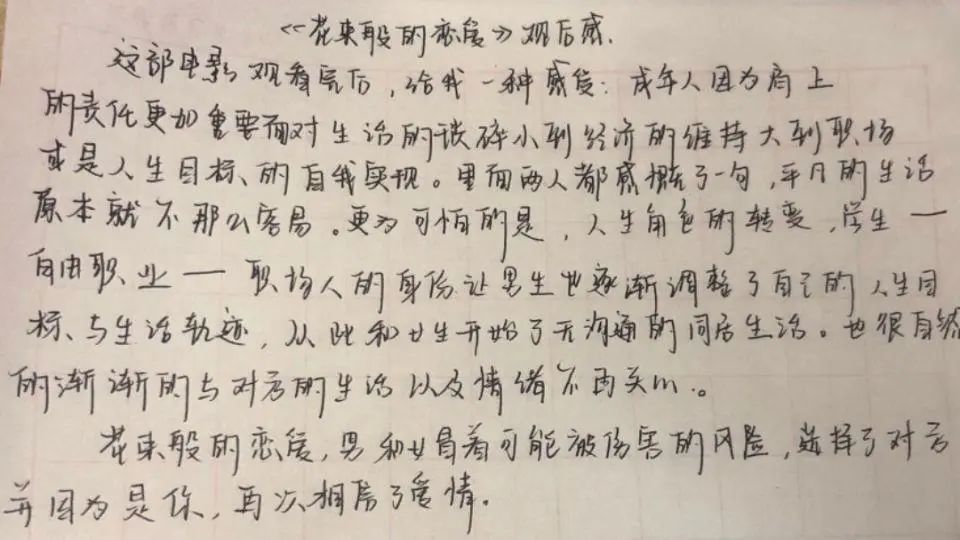 《花束般的恋爱》观后感.
这部电影观看完后，给我一种感觉：成年人因为肩上
的责任更加重要面对生活的琐碎小到经济的维持大到职场
或是人生目标的自我实现。里面两人都感慨了一句，平凡的生活
原本就不那么容易。更为可怕的是，人生角色的转变，学生一
自由职业一职场人的身份让男生也逐渐调整了自己的人生目
标与生活轨迹，从此和女生开始了无沟通的同居生活。也很自然
的渐渐的与对方的生活以及情绪不再关心。
花束般的恋爱，男和女冒着可能被伤害的风险，选择了对方
并因为是你，再次相信了爱情。